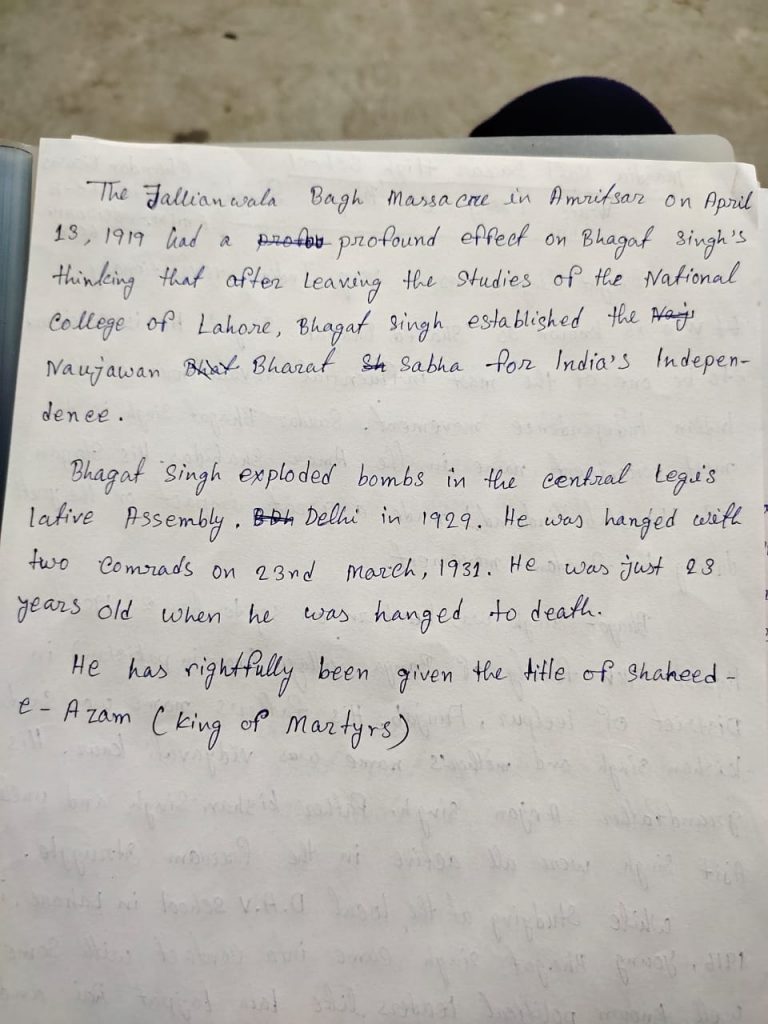 The Jallianwala Bagh Massacre in Amritsar on April
13, 1919 had a profound effect on Bhagat Singh's
thinking that after leaving the Studies of the National
College of Lahore, Bhagat Singh established the
Naujawan Bharat Sabha for India's Indepen-
dence.
Bhagat Singh exploded bombs in the central Legis
lative Assembly. Delhi in 1929. He was hanged with
two comrads on 23rd March, 1931. He was just 23
years old when he was hanged to death.
He has rightfully been given the title of Shaheed -
e - Azam (King of Martyrs)